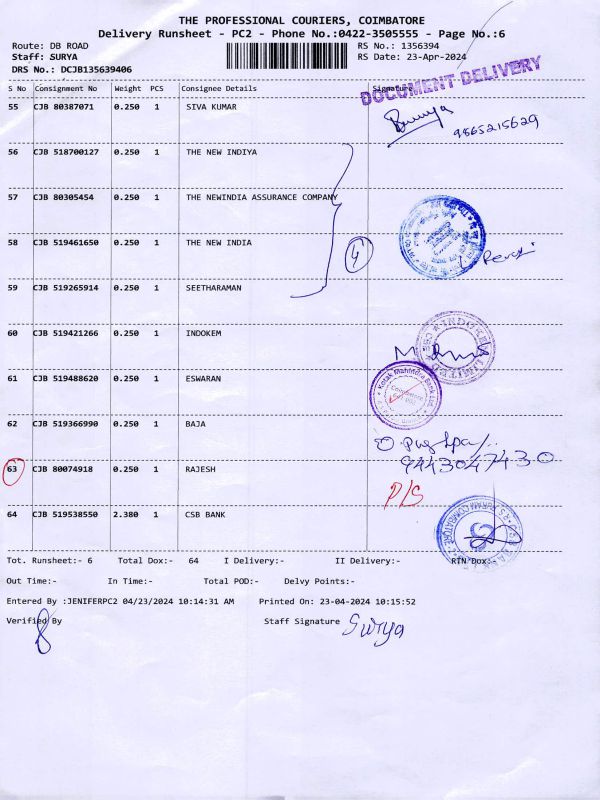 THE PROFESSIONAL COURIERS, COIMBATORE
Delivery Runsheet - PC2 - Phone No.:0422-3505555 - Page No.:6
Route: DB ROAD RS No.: 1356394
Staff: SURYA RS Date: 23-Apr-2024
DRS No.: DCJB135639406
DOCUMENT DELIVERY
S No Consignment No Weight PCS Consignee Details Signature
55 CJB 80387071 0.250 1 SIVA KUMAR
9865215629
56 CJB 518700127 0.250 1 THE NEW INDIYA
57 CJB 80305454 0.250 1 THE NEWINDIA ASSURANCE COMPANY
58 CJB 519461650 0.250 1 THE NEW INDIA
4
59 CJB 519265914 0.250 1 SEETHARAMAN
60 CJB 519421266 0.250 1 INDOKEM
INDOKEM LIMITED CBE
61 CJB 519488620 0.250 1 ESWARAN
Kotak Mahindra Bank Ltd.
Coimbatore
62 CJB 519366990 0.250 1 BAJA
63 CJB 80074918 0.250 1 RAJESH
9443047430
P/S
64 CJB 519538550 2.380 1 CSB BANK
R.S. PURAM COIMBATORE
Tot. Runsheet:- 6 Total Dox:- 64 I Delivery:- II Delivery:- RTN Dox:
Out Time:- In Time:- Total POD:- Delvy Points:-
Entered By :JENIFERPC2 04/23/2024 10:14:31 AM Printed On: 23-04-2024 10:15:52
Verified By Staff Signature Surya